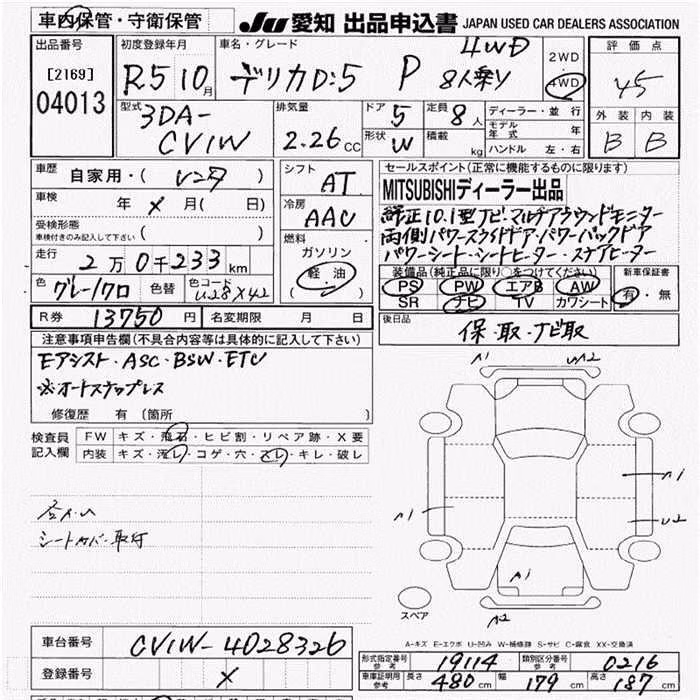 車内保管・守衛保管 JU 愛知 出品申込書 JAPAN USED CAR DEALERS ASSOCIATION
出品番号 [2169] 04013
初度登録年月 R5 10月
車名・グレード デリカD:5 P 4WD 8人乗り
2WD 4WD
評価点 45
型式 3DA-CV1W
排気量 2.26 CC
ドア 5
形状 W
定員 8人
積載 kg
ディーラー・並行
モデル年式 年
ハンドル 左・右
外装 B 内装 B
車歴 自家用・( レンタ )
車検 年 × 月( 日)
受検形態 車検付きのみ記入して下さい ( )
走行 2万0千233km
色 グレー/クロ 色替 色コード U28X42
シフト AT
冷房 AAC
燃料 ガソリン 軽油 ( ・ )
セールスポイント(正常に機能するものに限ります)
MITSUBISHIディーラー出品
純正10.1型ナビ・マルチアラウンドモニター
両側パワースライドドア・パワーバックドア
パワーシート・シートヒーター・ステアヒーター
装備品(純正品に限り○をつけてください) 新車保証書
PS PW エアB AW 有・無
SR ナビ TV カワシート
R券 13750円 名変期限 月 日
後日品 保・取・ナビ取
注意事項申告欄(不具合内容等は具体的に記入して下さい)
Eアシスト・ASC・BSW・ETC
※オートステップレス
修復歴 有 (箇所 )
検査員記入欄
FW キズ・飛石・ヒビ割・リペア跡・X要
内装 キズ・汚レ・コゲ・穴・スレ・キレ・破レ
シートカバー取付
A1 U2
A1
A1
U2
A1
A2
スペア
A-キズ E-エクボ U-凹み W-補修跡 S-サビ C-腐食 XX-交換済
車台番号 CV1W-4028326
登録番号 ×
形式指定番号 参考 19114 類別区分番号 参考 0216
車庫証明用 参考 長さ 480cm 幅 179cm 高さ 187cm